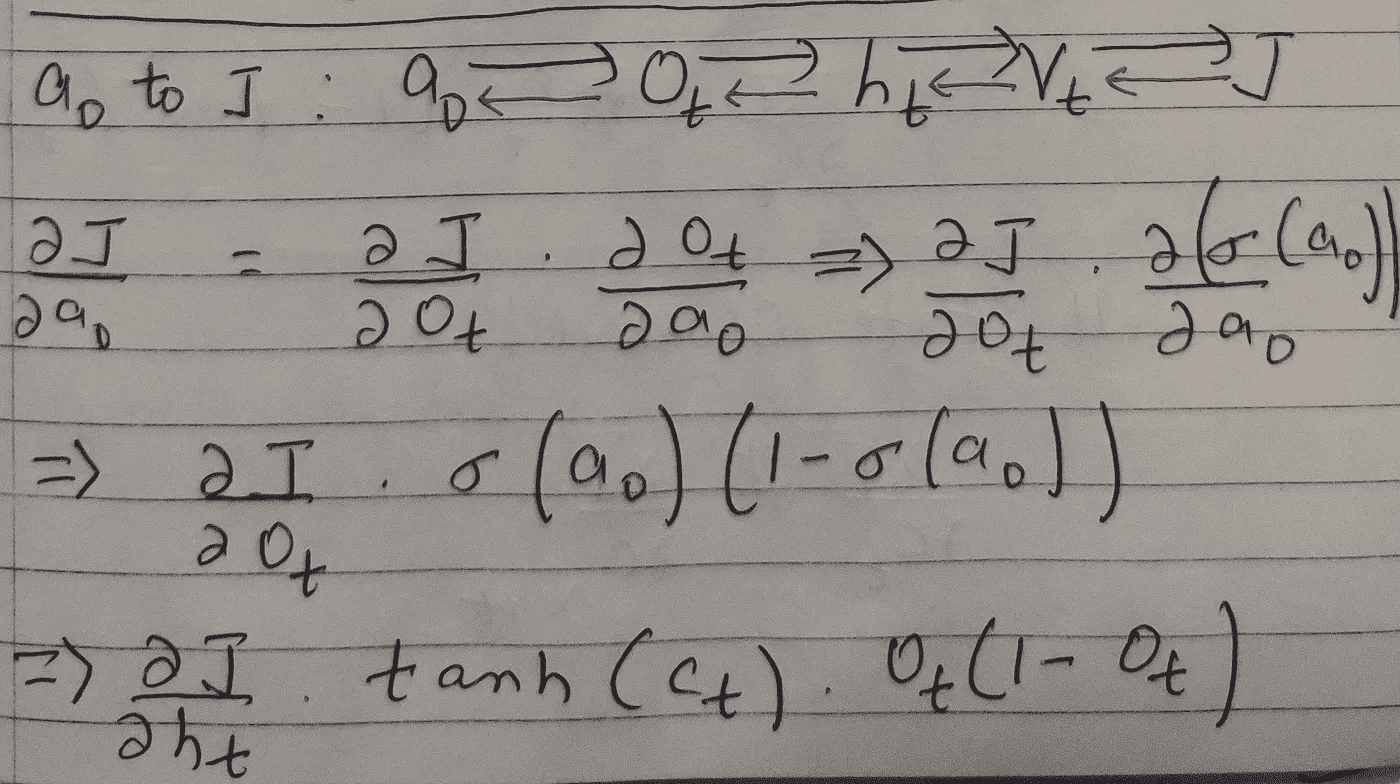 a₀ to J : a₀ ⇄ O_t ⇄ h_t ⇄ V_t ⇄ J
∂J/∂a₀ = ∂J/∂O_t . ∂O_t/∂a₀ => ∂J/∂O_t . ∂(σ(a₀))/∂a₀
=> ∂J/∂O_t . σ(a₀)(1-σ(a₀))
=> ∂J/∂h_t . tanh(c_t) . O_t(1-O_t)